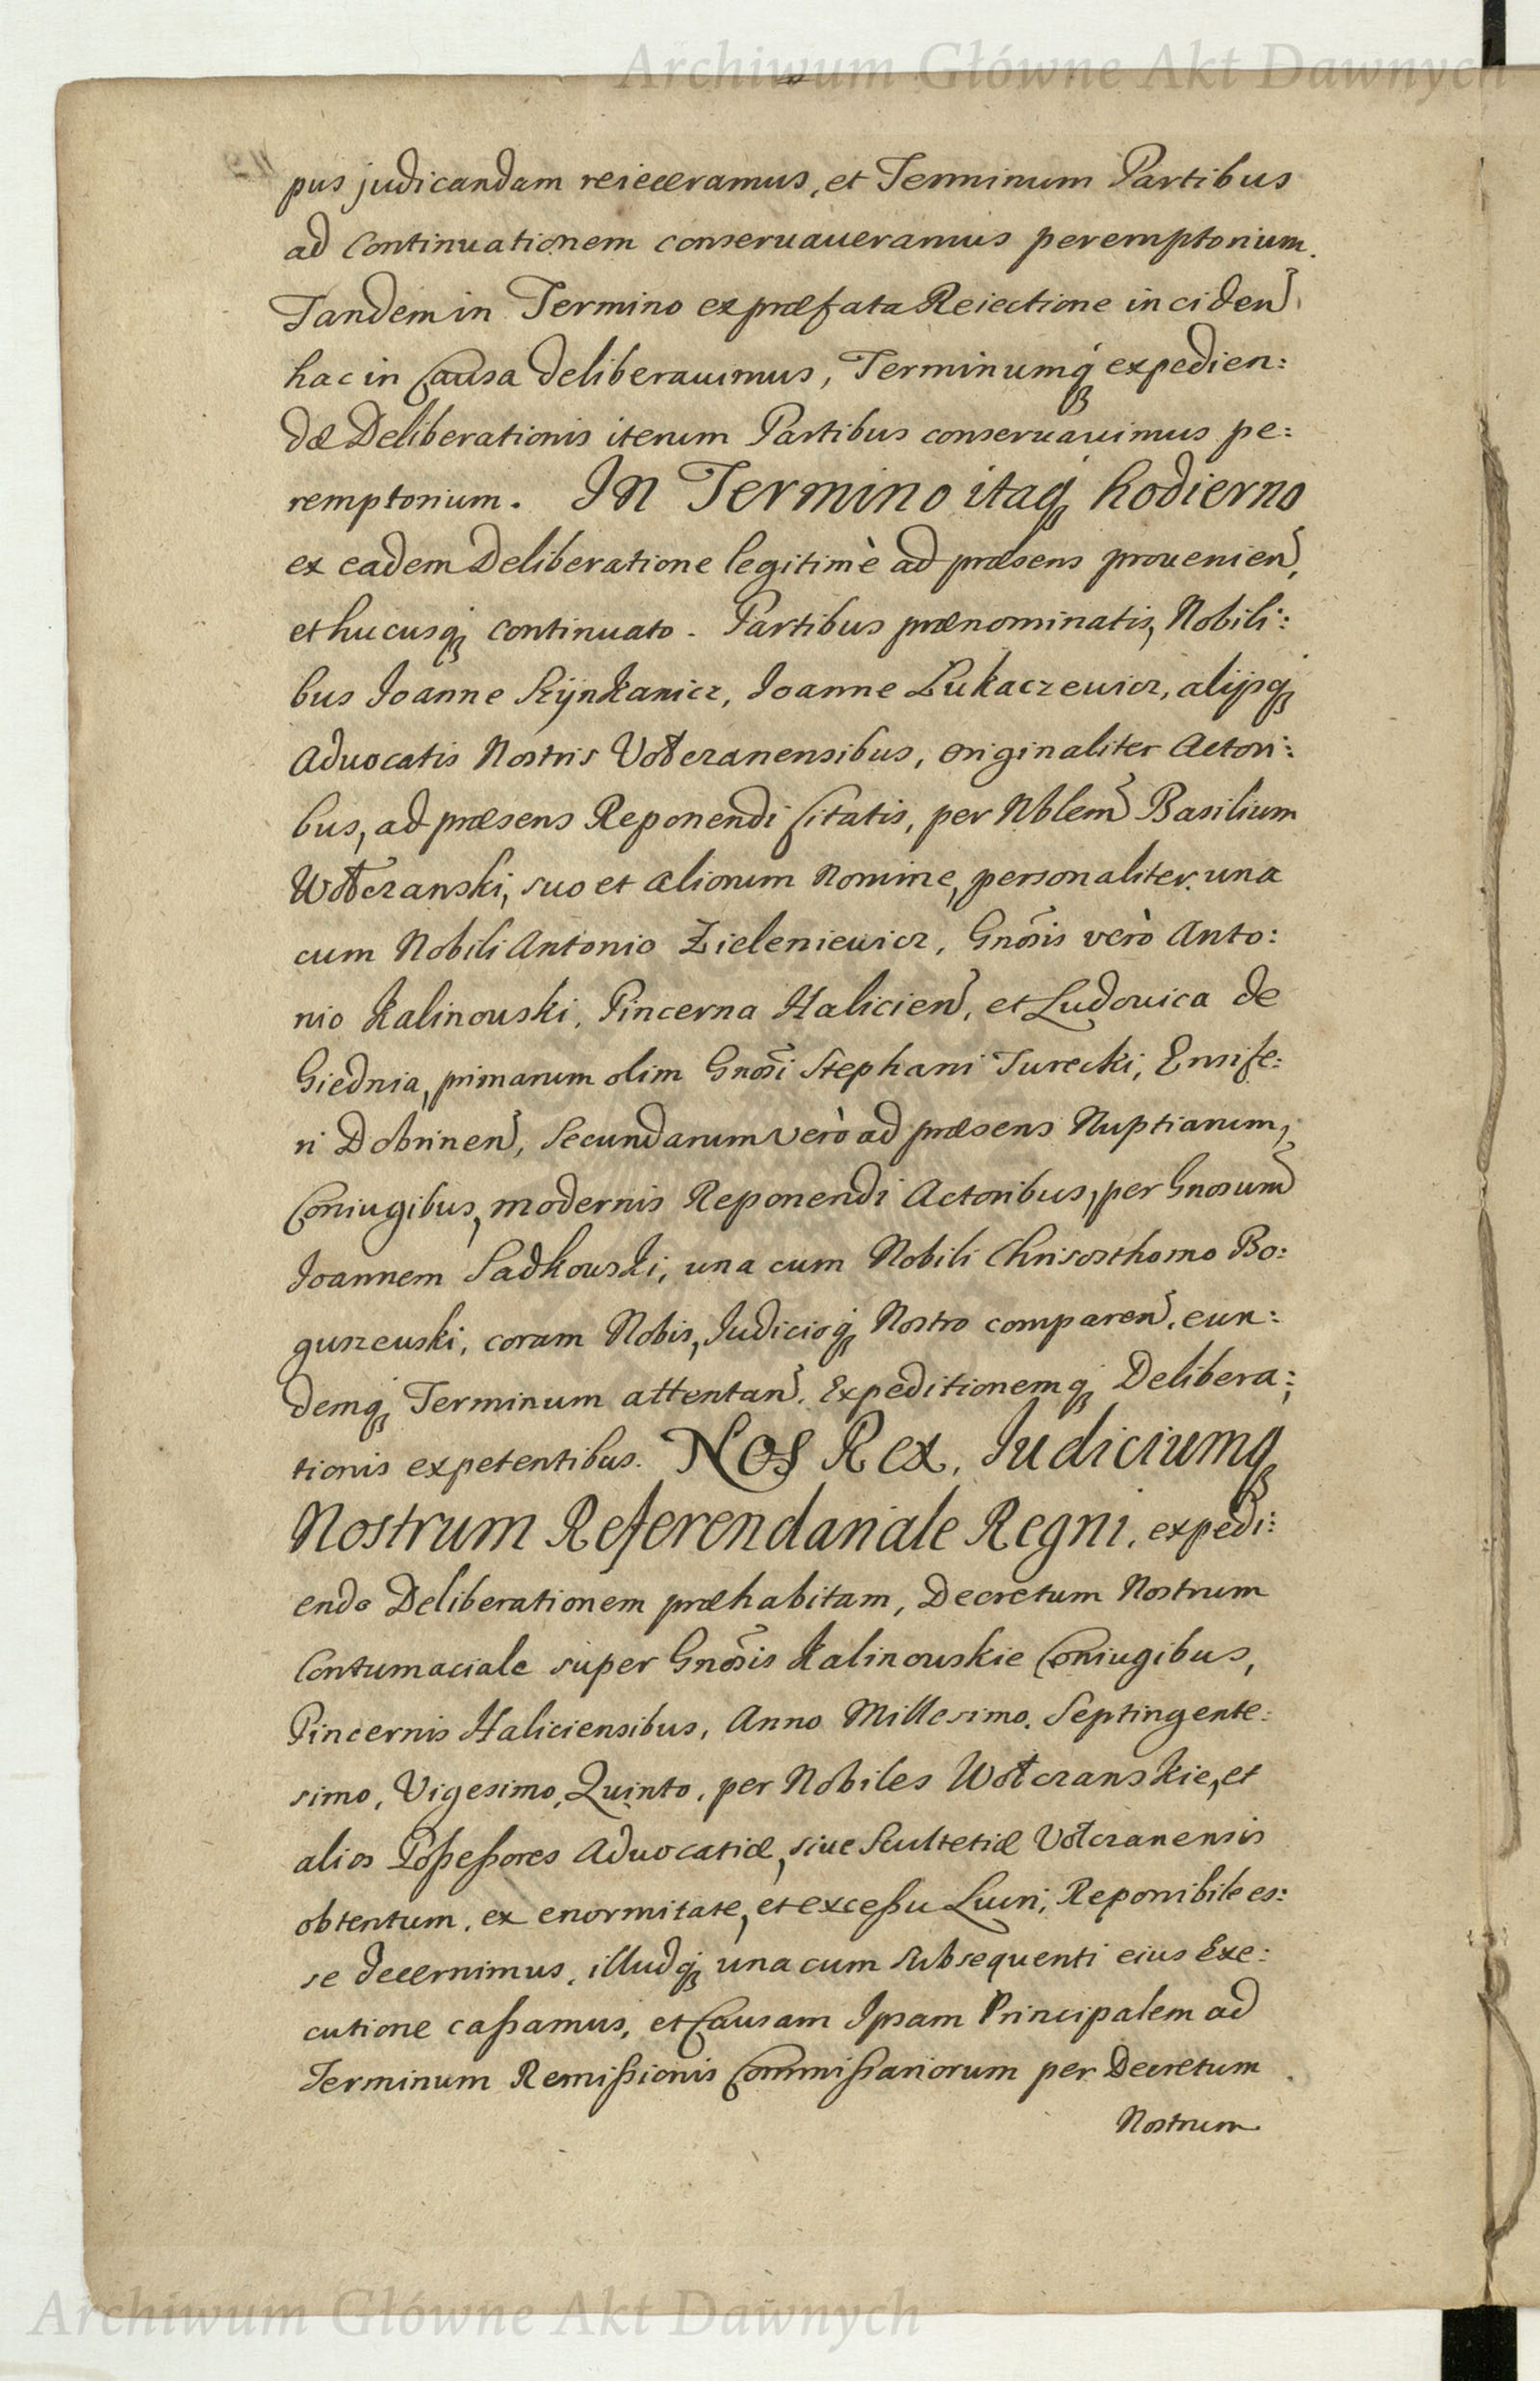 Archiwum Główne Akt Dawnych
pus judicandam reieceramus, et Terminum Partibus
ad Continuationem conseruaueramus peremptorium.
Tandem in Termino ex præfata Reiectione inciden̄
hac in Causa deliberauimus, Terminumq́ expedien:
dæ Deliberationis iterum Partibus conseruauimus pe:
remptorium. In Termino itaq́ hodierno
ex eadem Deliberatione legitimè ad præsens prouenien̄,
et hucusq́ continuato. Partibus prænominatis, Nobili:
bus Joanne Joanne Lukaczewicz, alijsq́
Aduocatis Nostris Vołczanensibus, originaliter Actori:
bus, ad præsens Reponendi Citatis, per Nblem̄ Basilium
Wołczanski, suo et aliorum Nomine, personaliter una
cum Nobili Antonio Zieleniewicz, Gnōsis verò Anto:
nio Kalinouski, Pincerna Halicien̄, et Ludouica de
Giednia, primarum olim Gnōsi Stephani Turecki, Ensife:
ri Dobrinen̄, Secundarum verò ad præsens Nuptiarum,
Coniugibus, modernis Reponendi Actoribus, per Gnosum̄
Joannem Sadkouski, una cum Nobili Chrisosthomo Bo:
guszeuski, coram Nobis, Judicioq́ Nostro comparen̄, eun:
demq́ Terminum attentan̄. Expeditionemq́ Delibera:
tionis expetentibus. Nos Rex, Judiciumq́
Nostrum Referendariale Regni, expedi:
endo Deliberationem præhabitam, Decretum Nostrum
Contumaciale super Gnōsis Kalinouskie Coniugibus,
Pincernis Haliciensibus, Anno Millesimo, Septingente:
simo, Vigesimo, Quinto, per Nobiles Wołczanskie, et
alios Poßeßores Aduocatiæ, siue Scultetiæ Vołczanensis
obtentum, ex enormitate, et exceßu Lucri, Reponibile es:
se decernimus, illudq́ una cum subsequenti eius Exe:
cutione caßamus, et Causam Ipsam Principalem ad
Terminum Remißionis Commißariorum per Decretum
Nostrum
Archiwum Główne Akt Dawnych